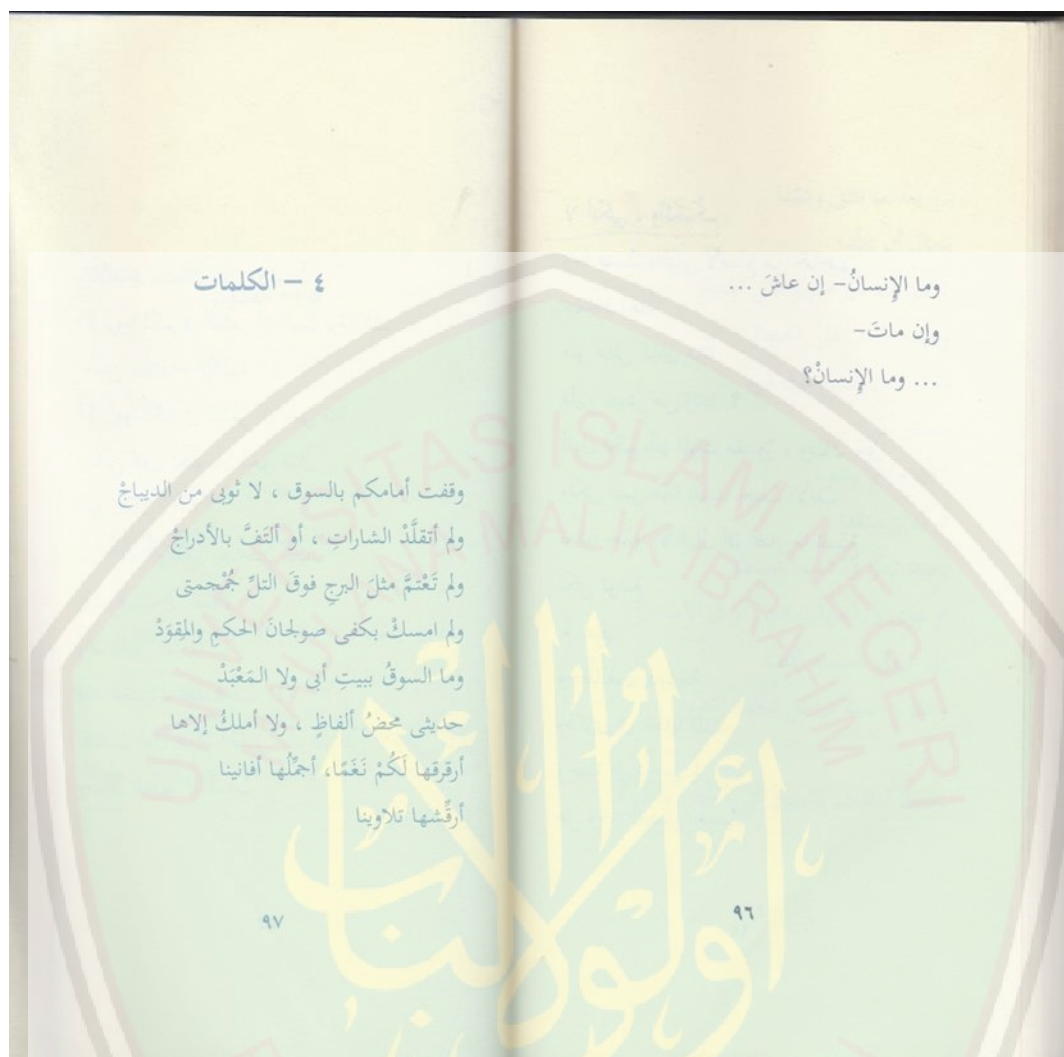 وما الإِنسانُ- إن عاشَ ...
وإن ماتَ-
... وما الإِنسانْ؟
٩٦
٤ – الكلمات
وقفت أمامكم بالسوق ، لا ثوبى من الديباجْ
ولم أتقلَّدْ الشاراتِ ، أو ألتَفَّ بالأدراجْ
ولم تَعْتمَّ مثلَ البرجِ فوقَ التلِّ جُمْجمتى
ولم امسكْ بكفى صولجانَ الحكمِ والمِقوَدْ
وما السوقُ ببيتِ أبى ولا المَعْبَدْ
حديثى محضُ ألفاظٍ ، ولا أملكُ إلاها
أرقرقها لَكُمْ نَغَمًا، أجمِّلُها أفانينا
أرقِّشها تلاوينا
٩٧
UNIVERSITAS ISLAM NEGERI
MAULANA MALIK IBRAHIM